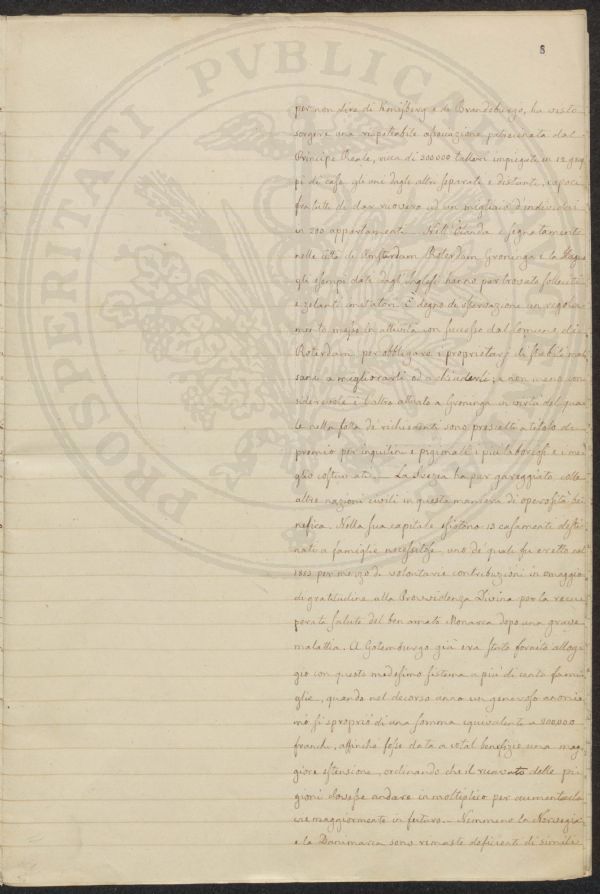 8
PROSPERITATI PVBLICAE
per non dire di Konisberg e di Brandeburgo, ha visto
sorgere una rispettabile associazione patrocinata dal
Principe Reale, ricca di 300000 talleri impiegate in 12 grup
pi di case gli uni dagli altri separati e distanti, capaci
fra tutti di dar ricovero ad un migliaio d'individui
in 200 appartamenti. Nell'Olanda e segnatamente
nelle città di Amsterdam, Roterdam, Groninga e la Haya
gli esempi dati dagl'Inglesi hanno pur trovato solleciti
e zelanti imitatori. È degno di osservazione un regola
mento messo in attività con successo dal Comune di
Roterdam per obbligare i proprietarj di stabili mal
sani a migliorarli od a chiuderli, e non meno con
siderevole è l'altro attivato a Groninga in virtù del qua
le nella folla de' richiedenti sono prescelti a titolo di
premio per inquilini e pigionali i più laboriosi e i me
glio costumati. — La Svezia ha pur gareggiato colle
altre nazioni civili in questa maniera di operosità be
nefica. Nella sua capitale esistono 13 casamenti desti
nati a famiglie necessitose, uno de' quali fu eretto nel
1853 per mezzo di volontarie contribuzioni in omaggio
di gratitudine alla Provvidenza Divina per la recu
perata salute del ben amato Monarca dopo una grave
malattia. A Gotemburgo già era stato fornito allog
gio con questo medesimo sistema a più di cento fami
glie, quando nel decorso anno un generoso anoni
mo si spropriò di una somma equivalente a 200000
franchi, affinchè fosse data a total benefizio una mag
giore estensione, ordinando che il ricavato delle pi
gioni dovesse andare in moltiplico per aumentarla
vie maggiormente in futuro. — Nemmeno la Norvegia
e la Danimarca sono rimaste deficienti di simili